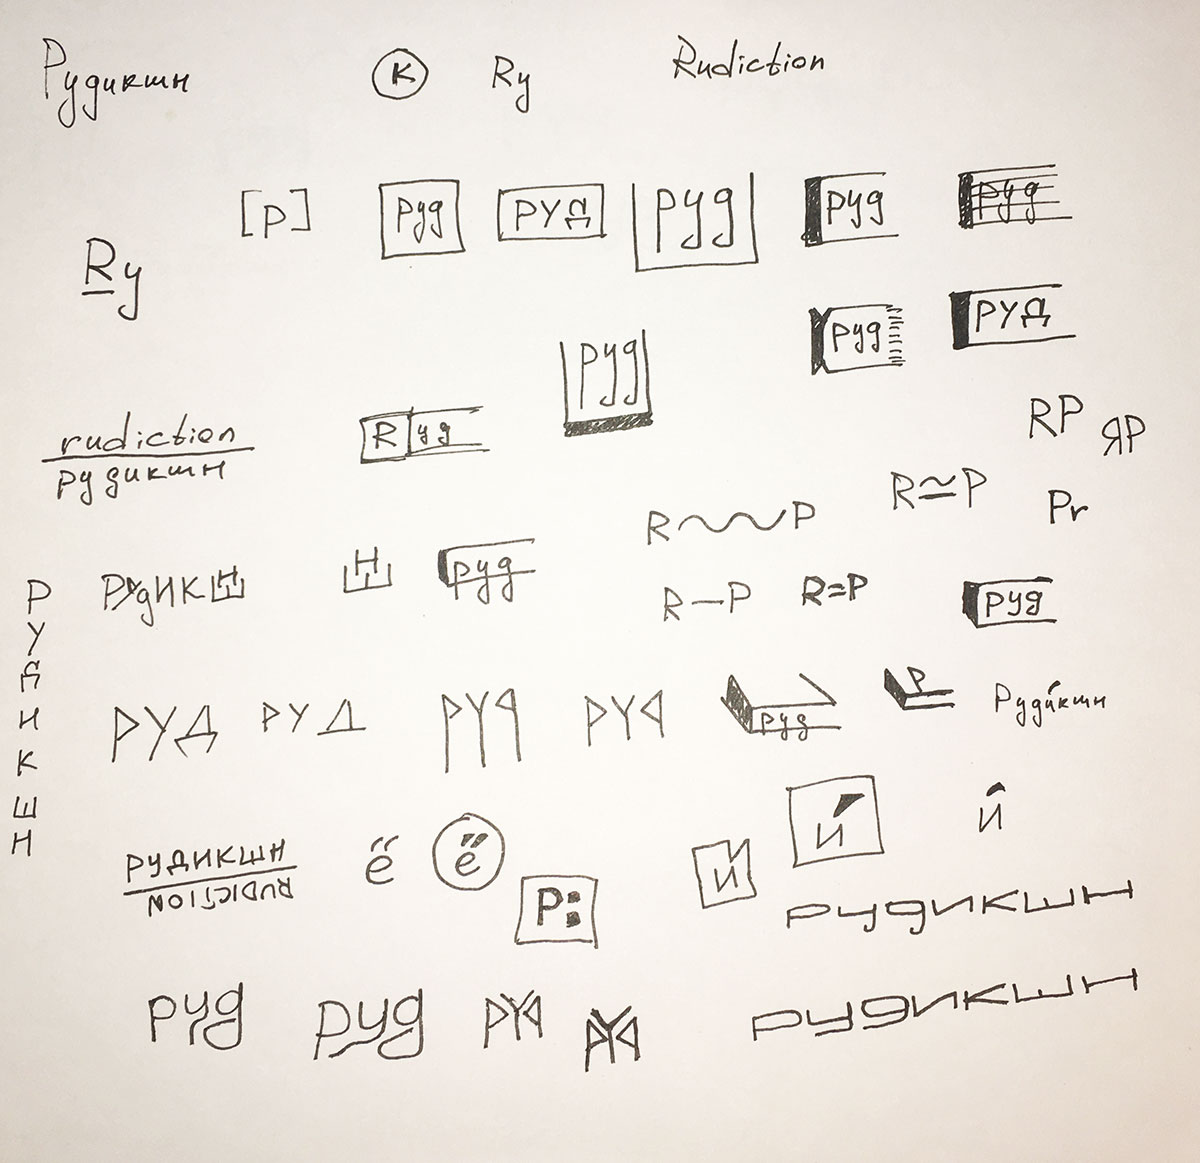 Рудикшн К Ry Rudiction
[р] руд РУД руд руд руд
Ry
руд РУД
руд
rudiction
рудикшн
R уд
RP ЯР
R≃P
Pr
R~P
РудИКШН
ШН
руд
R—P R=P
руд
РУДИКШН
РУД РУД РУД РУД руд Р Руди́кшн
РУДИКШН
RUDICTION
ё ё
Р:
й й й
рудикшн
руд руд РУД РУД
рудикшн